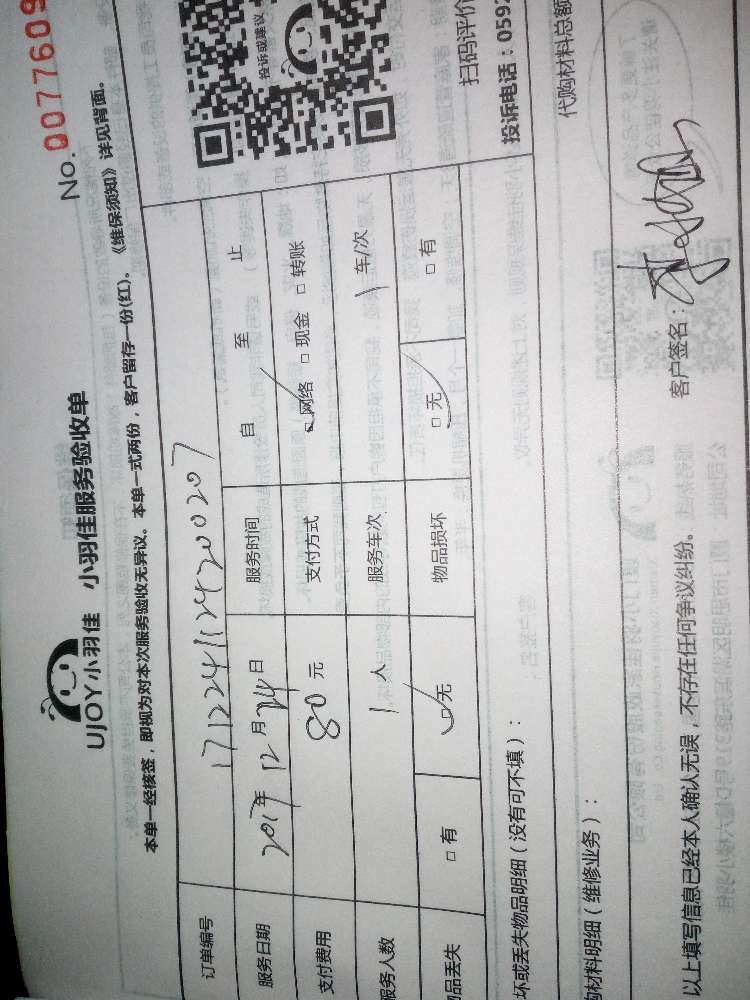 No. 0077609
UJOY小羽佳 小羽佳服务验收单
本单一经接签，即视为对本次服务验收无异议。本单一式两份，客户留存一份(红)。《维保须知》详见背面。
订单编号 17122411242200207
服务日期 2017年 12月 24日 服务时间 自 至 止
支付费用 80元 支付方式 □网络 □现金 □转账
服务人数 1人 服务车次 1车/次
品丢失 □有 □无 物品损坏 □无 □有
坏或丢失物品明细（没有可不填）：
材料明细（维修业务）：
代购材料总额
以上填写信息已经本人确认无误，不存在任何争议纠纷。 客户签名：
投诉或建议
扫码评价
投诉电话：0592